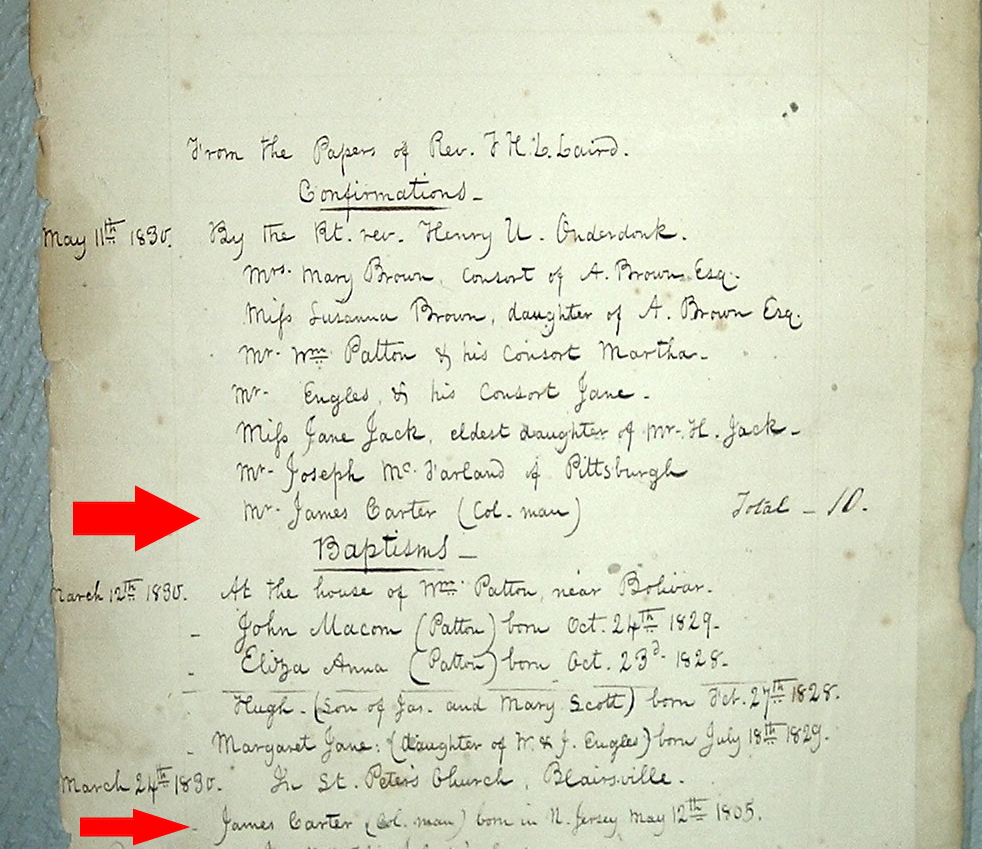 From the Papers of Rev. F H. L. Laird.
Confirmations -
May 11th 1830. By the Rt. rev. Henry U. Onderdonk.
Mrs. Mary Brown, consort of A. Brown Esq.
Miſs Susanna Brown, daughter of A. Brown Esq.
Mr. Wm Patton & his consort Martha.
Mr. Engles, & his consort Jane.
Miſs Jane Jack, eldest daughter of Mr. H. Jack.
Mr. Joseph Mc Farland of Pittsburgh
Mr. James Carter (Col. man) Total - 10.
Baptisms -
March 12th 1830. At the house of Wm Patton, near Bolivar.
- John Macom (Patton) born Oct. 24th 1829.
- Eliza Anna (Patton) born Oct. 23d 1828.
- Hugh. (Son of Jas. and Mary Scott) born Feb. 27th 1828.
- Margaret Jane. (daughter of W. & J. Engles) born July 18th 1829.
March 24th 1830. In St. Peter's Church, Blairsville.
- James Carter (Col. man) born in N. Jersey May 12th 1805.